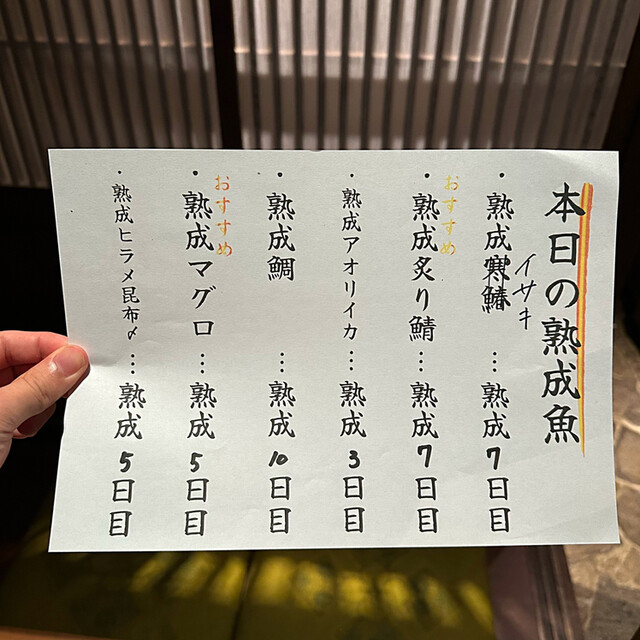 本日の熟成魚
イサキ
・熟成寒鰆…熟成7日目
おすすめ
・熟成炙り鯖…熟成7日目
・熟成アオリイカ…熟成3日目
・熟成鯛…熟成10日目
おすすめ
・熟成マグロ…熟成5日目
・熟成ヒラメ昆布〆…熟成5日目